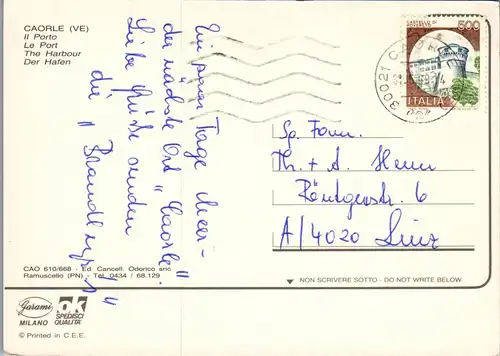 CAORLE (VE)
Il Porto
Le Port
The Harbour
Der Hafen
Ein paar Tage Meer -
der nächste Ort "Caorle"
Liebe Grüße senden
die "
CASTELLO DI
ROVERETO
500
ITALIA
30021 CAORLE
Sp. Fam.
Th. + A. Henn
Röntgenstr. 6
A/4020 Linz
CAO 610/668 - Ed. Cancell. Odorico snc
Ramuscello (PN) - Tel. 0434 / 68.129
NON SCRIVERE SOTTO - DO NOT WRITE BELOW
Garami
MILANO
ok
SPEDISCI
QUALITA'
© Printed in C.E.E.